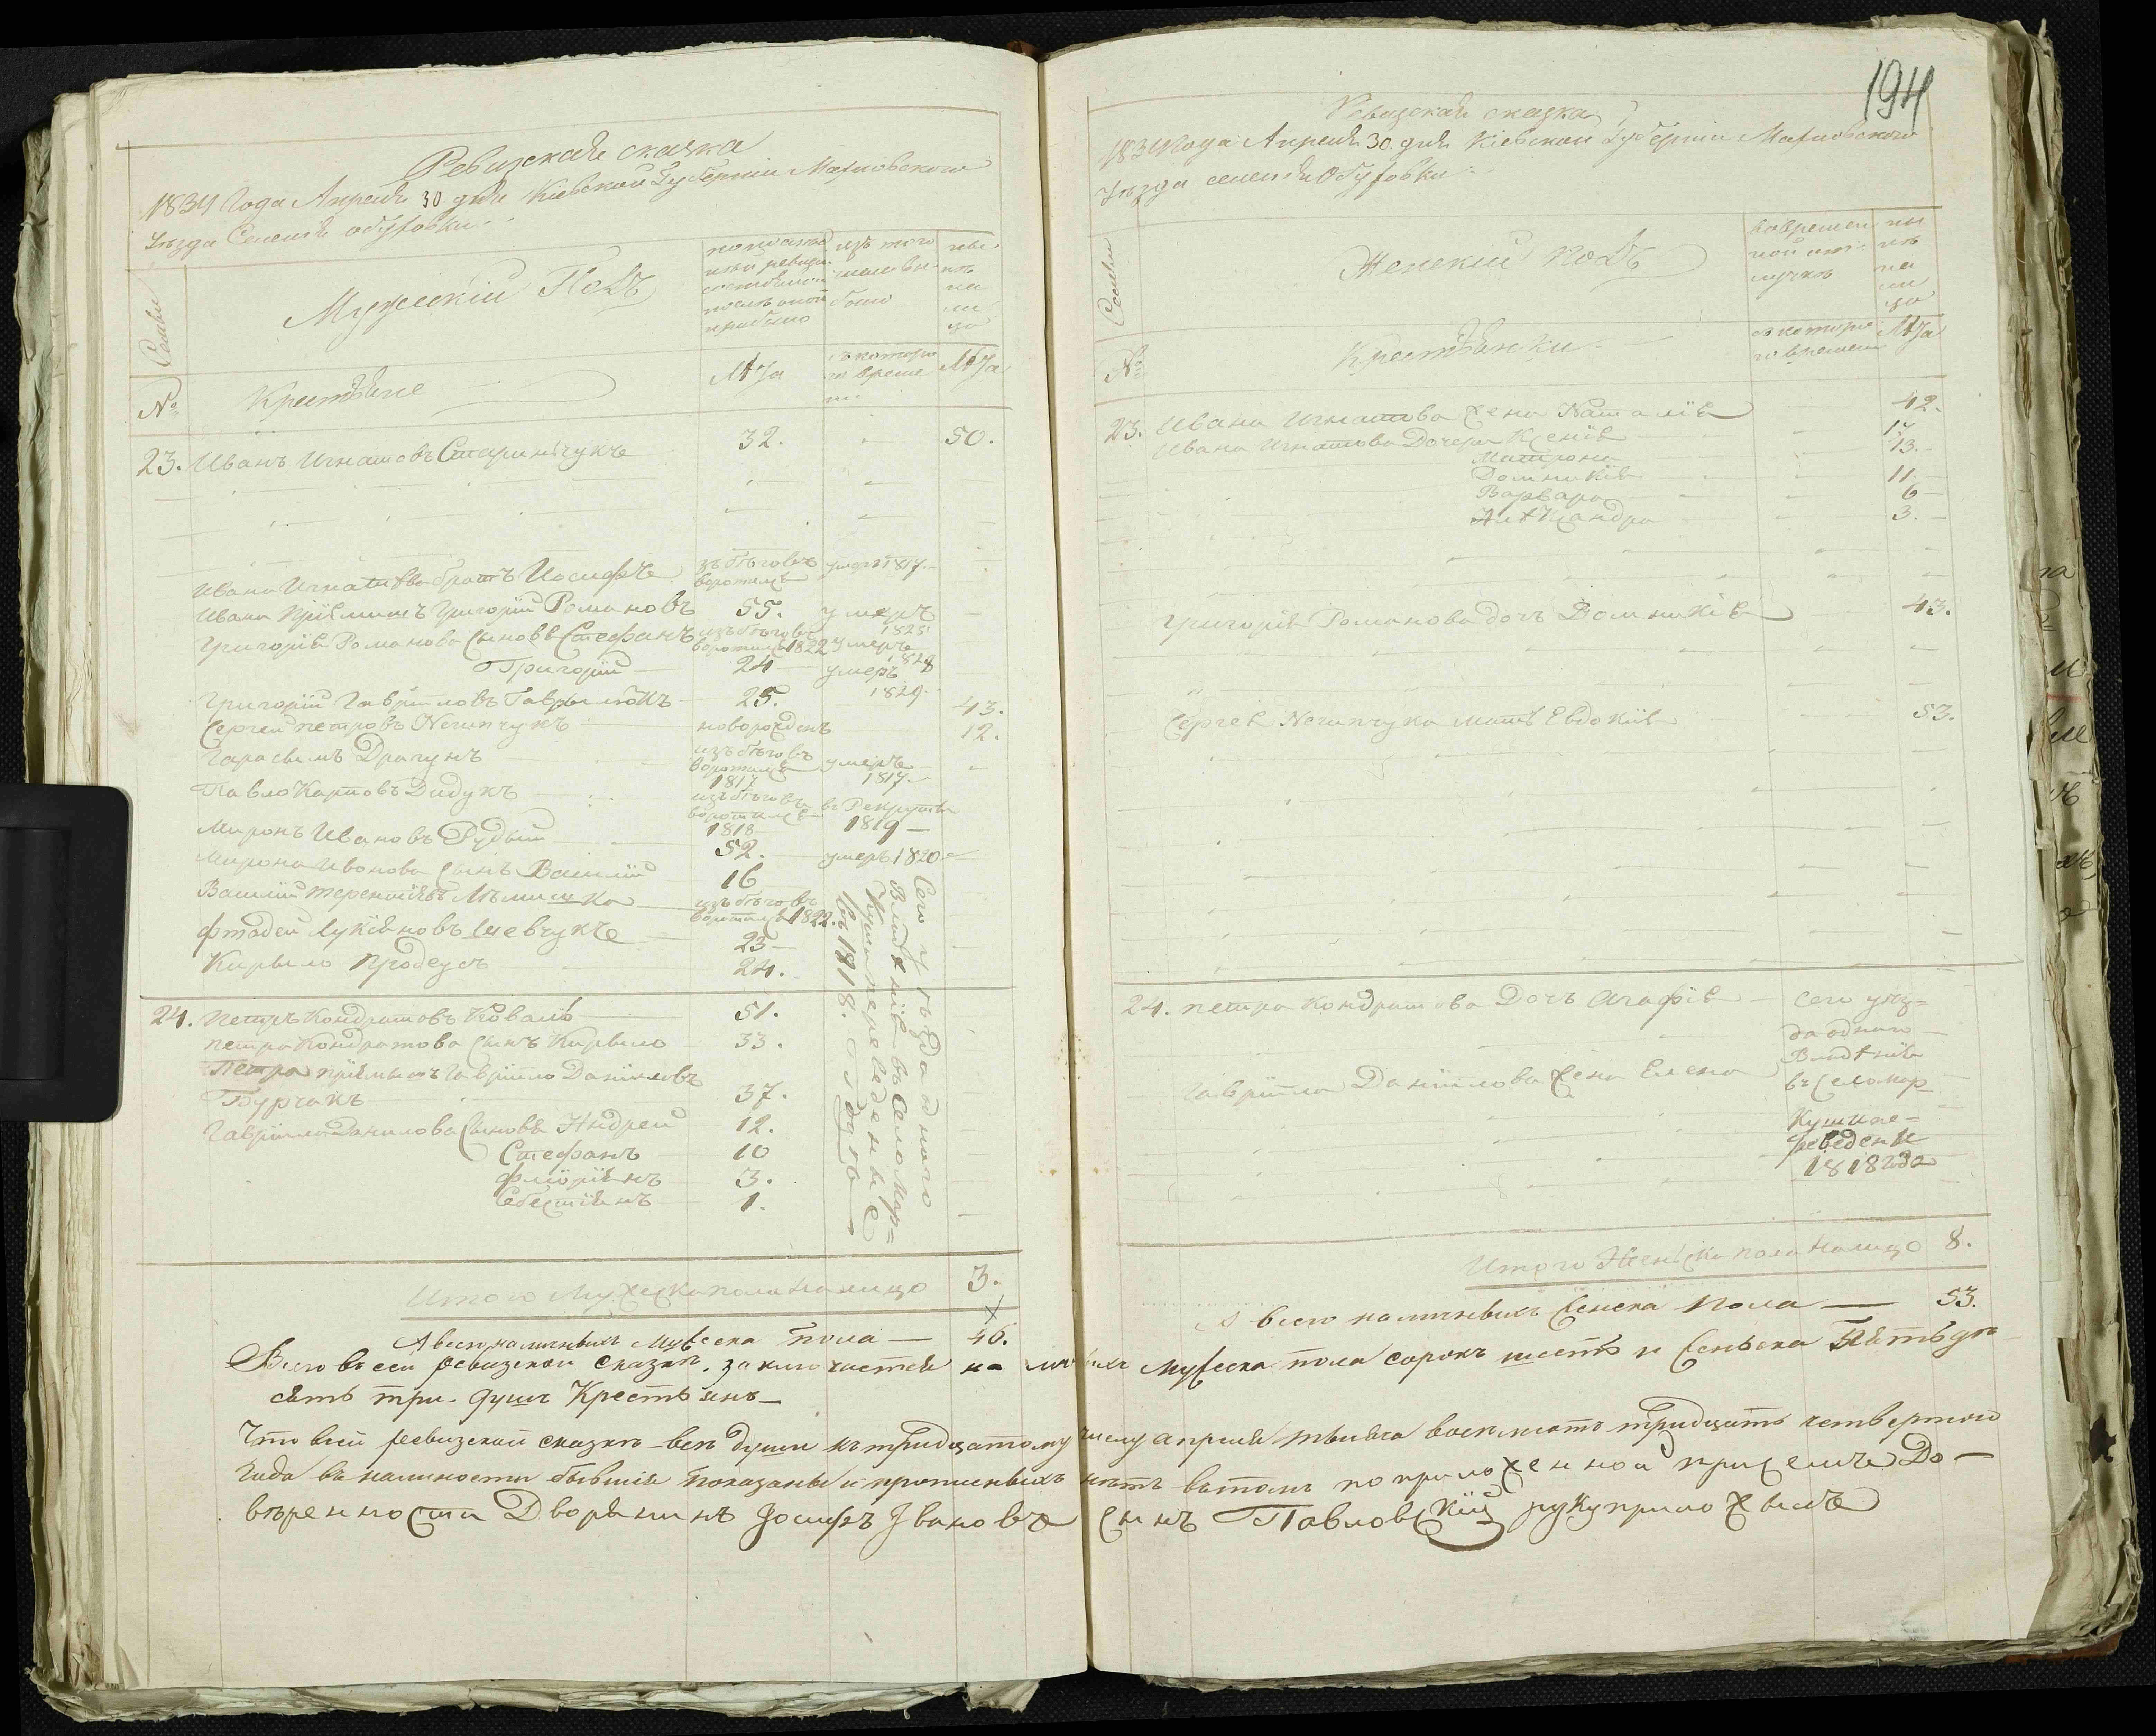 Ревизская сказка
1834 года Апреля 30 дня Кіевской Губерніи Махновского
Уезда Селенія обуховки
Семьи
Мужескій Полъ
изъ того
выбыло
ны
не
на
ли
цо
№
Крестьяне
Лѣта
съ которо
го време
ни
Лѣта
23. Иванъ Игнатовъ Старинчукъ 32. 50.
Ивана Игнатова братъ Иосифъ изъ бѣговъ воротился умеръ 1817.
Ивана Пріймитъ Григорій Романовъ 55. умеръ 1825
Григорія Романова Сыновя Стефанъ изъ бѣговъ воротился 1822 умеръ 1828
Григорій 24 умеръ 1829
Григорій Гаврииловъ Гаврылюкъ 25. 43.
Сергей петровъ Нечипчукъ новорожденъ 12.
Гарасымъ Драгунъ изъ бѣговъ воротился 1817 умеръ 1817
Павло Карповъ Дидукъ изъ бѣговъ воротился 1818 въ Рекруты 1819
Миронъ Ивановъ Рудый 52. умеръ 1820
Мирона Иванова Сынъ Василій 16
Василій терентіевъ изъ бѣговъ воротился 1822.
фтадей Лукіяновъ Шевчукъ 23
Кирыло Продеусъ 24.
24. петръ Кондратовъ Коваль 51.
петра Кондратова Сынъ Кирыло 33.
Петра пріймытъ Гавріило Даніиловъ
Бурчакъ 37.
Гавріила Данилова Сыновя Андрей 12.
Стефанъ 10
Флоріянъ 3.
Себестіянъ 1.
Сего уѣзда одного
Владѣнія въ село Мар=
Куши переведены
въ 1818. Годѣ
Итого Мужеска пола налицо 3.
А всего наличныхъ мужеска пола — 46.
194
Ревизская сказка
1834 года Апреля 30. дня Кіевской Губерніи Махновского
Уезда селенія Обуховки
Семьи
Женскій полъ
вовремен
ной от
лучке
ны
не
на
ли
цо
№
Крестьянки
съ которо
го времени
Лѣта
23. Ивана Игнатова жена Наталія 42.
Ивана Игнатова Дочери Ксенія 17
Матрона 13.
Домникія 11
Варвара 6
Александра 3.
Григорія Романова дочъ Домникія 43.
Сергея Нечипчука мать Евдокія 53.
24. петра Кондратова Дочъ Агафія
Гавріила Даніилова жена Елена
Сего уѣз=
да одного
Владѣнія
въ Село мар
Куши пе=
реведены
1818 года
Итого Женьска пола налицо 8.
А всего наличныхъ женска пола — 53.
Всего въ сей ревизской сказкѣ, заключается на личныхъ мужеска пола сорокъ шесть и женьска Пятьде
сять три душъ Крестьянъ
Что въ сей ревизской сказке все души къ тридцатому числу апреля тысяча восемьсотъ тридцать четвертого
Года въ наличности бывшія показаны и прописныхъ нетъ въ томъ по приложенной присемъ До —
веренности Дворянинъ Іосифъ Івановъ Сынъ Павловскій руку приложылъ